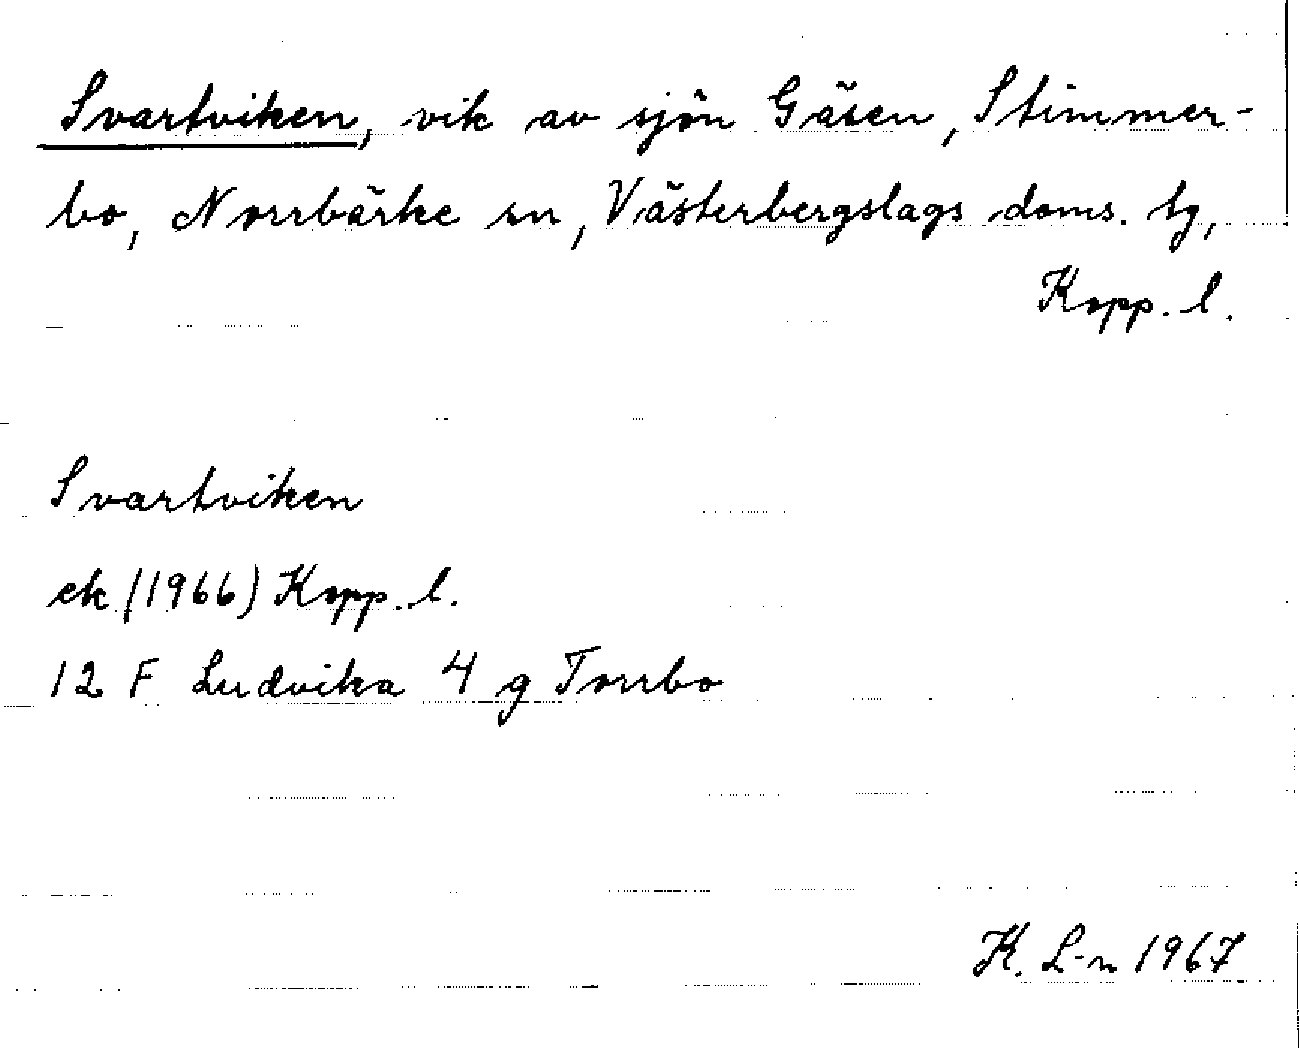 Svartviken, vik av sjön Gäsen, Stimmer-
bo, Norrbärke sn, Västerbergslags doms. tg,
Kopp. l.
Svartviken
ek (1966) Kopp. l.
12 F Ludvika 4 g Torrbo
K. L-n 1967